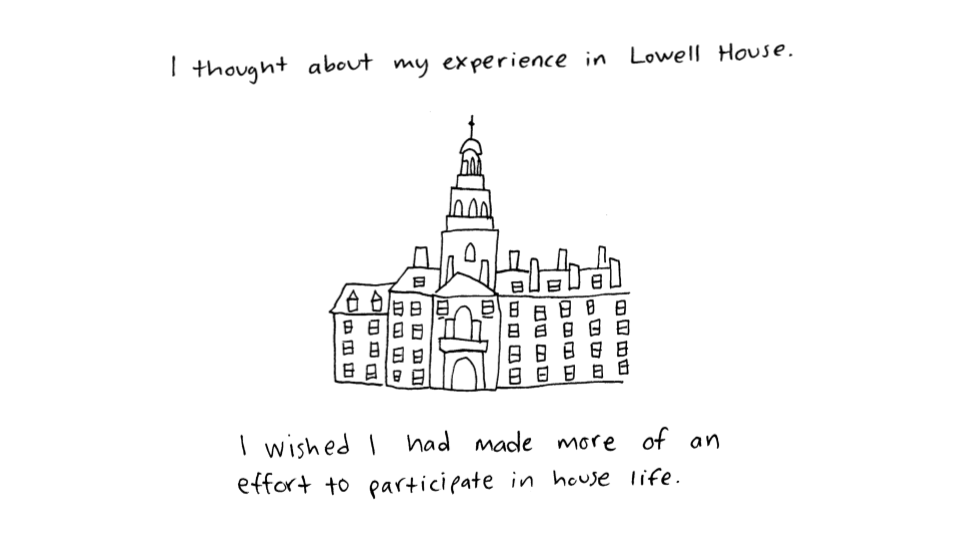 I thought about my experience in Lowell House.
I wished I had made more of an
effort to participate in house life.